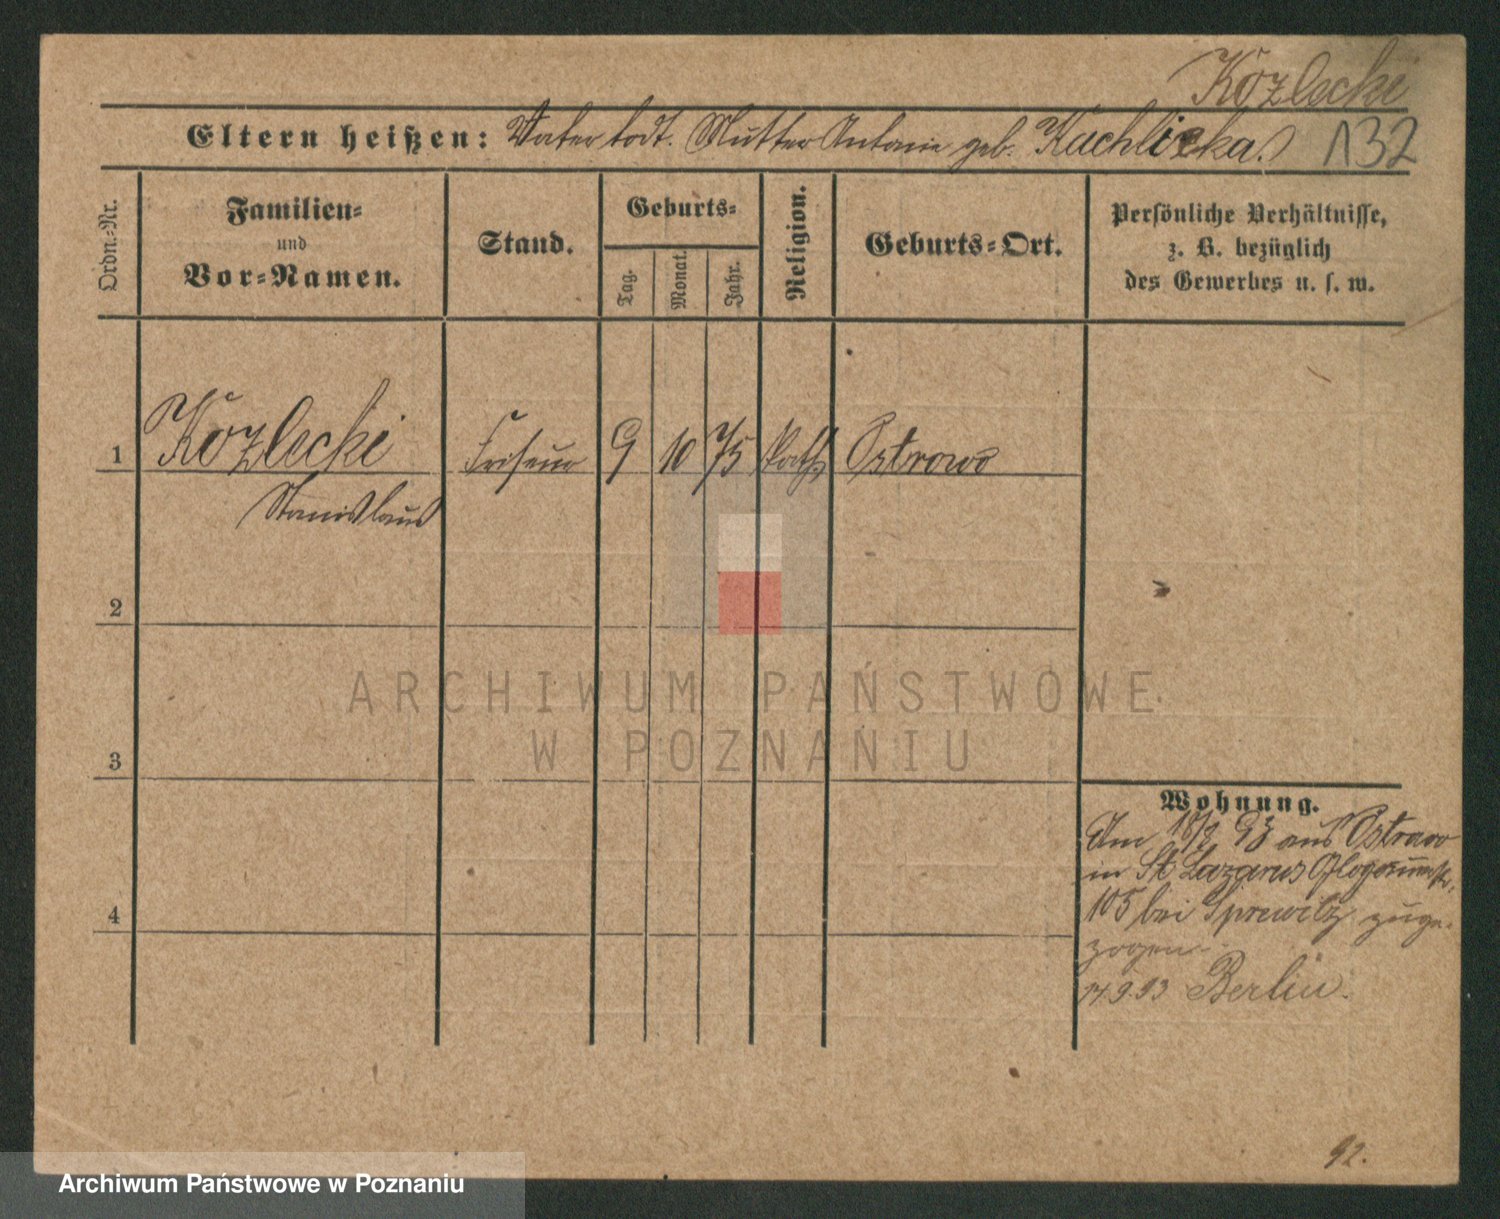 Kozlecki
Eltern heißen: Vater todt. Mutter Antonie geb. Kuchlicka.
132
Ordn.-Nr.
Familien-
und
Vor-Namen.
Stand.
Geburts-
Tag.
Monat.
Jahr.
Religion.
Geburts-Ort.
Persönliche Verhältnisse,
z. B. bezüglich
des Gewerbes u. s. w.
1 Kozlecki Friseur 9 10 75 kath. Ostrowo
Stanislaus
2
3
4
Wohnung.
Am 18/8 93 aus Ostrowo
in St. Lazarus
105 bei Sprewitz zuge-
zogen.
14.9.93 Berlin.
92.
ARCHIWUM PAŃSTWOWE
W POZNANIU
Archiwum Państwowe w Poznaniu